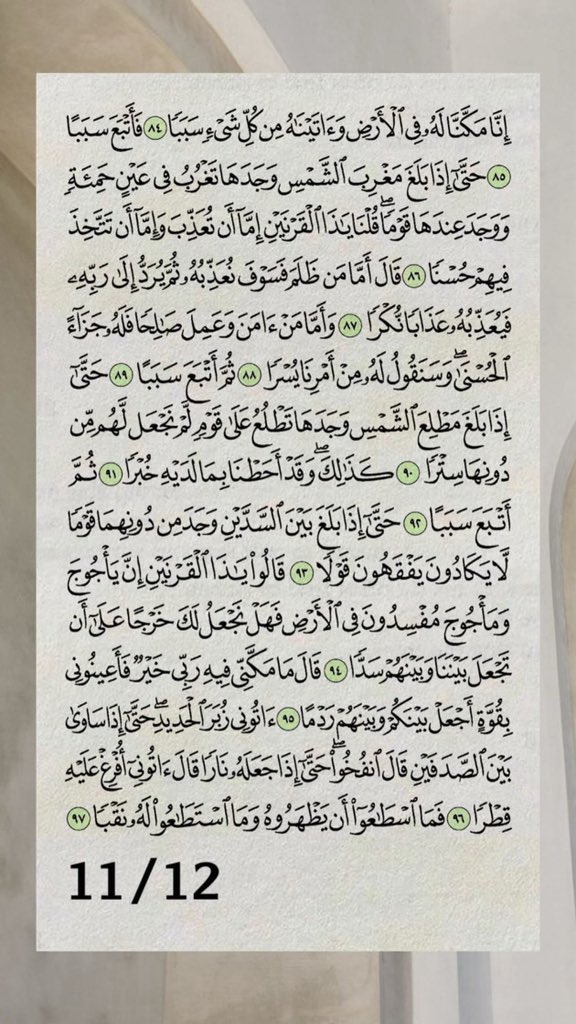 إِنَّا مَكَّنَّا لَهُۥ فِى ٱلْأَرْضِ وَءَاتَيْنَٰهُ مِن كُلِّ شَىْءٍ سَبَبًا ٨٤ فَأَتْبَعَ سَبَبًا
٨٥ حَتَّىٰٓ إِذَا بَلَغَ مَغْرِبَ ٱلشَّمْسِ وَجَدَهَا تَغْرُبُ فِى عَيْنٍ حَمِئَةٍ
وَوَجَدَ عِندَهَا قَوْمًا ۗ قُلْنَا يَٰذَا ٱلْقَرْنَيْنِ إِمَّآ أَن تُعَذِّبَ وَإِمَّآ أَن تَتَّخِذَ
فِيهِمْ حُسْنًا ٨٦ قَالَ أَمَّا مَن ظَلَمَ فَسَوْفَ نُعَذِّبُهُۥ ثُمَّ يُرَدُّ إِلَىٰ رَبِّهِۦ
فَيُعَذِّبُهُۥ عَذَابًا نُّكْرًا ٨٧ وَأَمَّا مَنْ ءَامَنَ وَعَمِلَ صَٰلِحًا فَلَهُۥ جَزَآءً
ٱلْحُسْنَىٰ ۖ وَسَنَقُولُ لَهُۥ مِنْ أَمْرِنَا يُسْرًا ٨٨ ثُمَّ أَتْبَعَ سَبَبًا ٨٩ حَتَّىٰٓ
إِذَا بَلَغَ مَطْلِعَ ٱلشَّمْسِ وَجَدَهَا تَطْلُعُ عَلَىٰ قَوْمٍ لَّمْ نَجْعَل لَّهُم مِّن
دُونِهَا سِتْرًا ٩٠ كَذَٰلِكَ ۖ وَقَدْ أَحَطْنَا بِمَا لَدَيْهِ خُبْرًا ٩١ ثُمَّ
أَتْبَعَ سَبَبًا ٩٢ حَتَّىٰٓ إِذَا بَلَغَ بَيْنَ ٱلسَّدَّيْنِ وَجَدَ مِن دُونِهِمَا قَوْمًا
لَّا يَكَادُونَ يَفْقَهُونَ قَوْلًا ٩٣ قَالُوا۟ يَٰذَا ٱلْقَرْنَيْنِ إِنَّ يَأْجُوجَ
وَمَأْجُوجَ مُفْسِدُونَ فِى ٱلْأَرْضِ فَهَلْ نَجْعَلُ لَكَ خَرْجًا عَلَىٰٓ أَن
تَجْعَلَ بَيْنَنَا وَبَيْنَهُمْ سَدًّا ٩٤ قَالَ مَا مَكَّنِّى فِيهِ رَبِّى خَيْرٌ فَأَعِينُونِى
بِقُوَّةٍ أَجْعَلْ بَيْنَكُمْ وَبَيْنَهُمْ رَدْمًا ٩٥ ءَاتُونِى زُبَرَ ٱلْحَدِيدِ ۖ حَتَّىٰٓ إِذَا سَاوَىٰ
بَيْنَ ٱلصَّدَفَيْنِ قَالَ ٱنفُخُوا۟ ۖ حَتَّىٰٓ إِذَا جَعَلَهُۥ نَارًا قَالَ ءَاتُونِىٓ أُفْرِغْ عَلَيْهِ
قِطْرًا ٩٦ فَمَا ٱسْطَٰعُوٓا۟ أَن يَظْهَرُوهُ وَمَا ٱسْتَطَٰعُوا۟ لَهُۥ نَقْبًا ٩٧
11/12